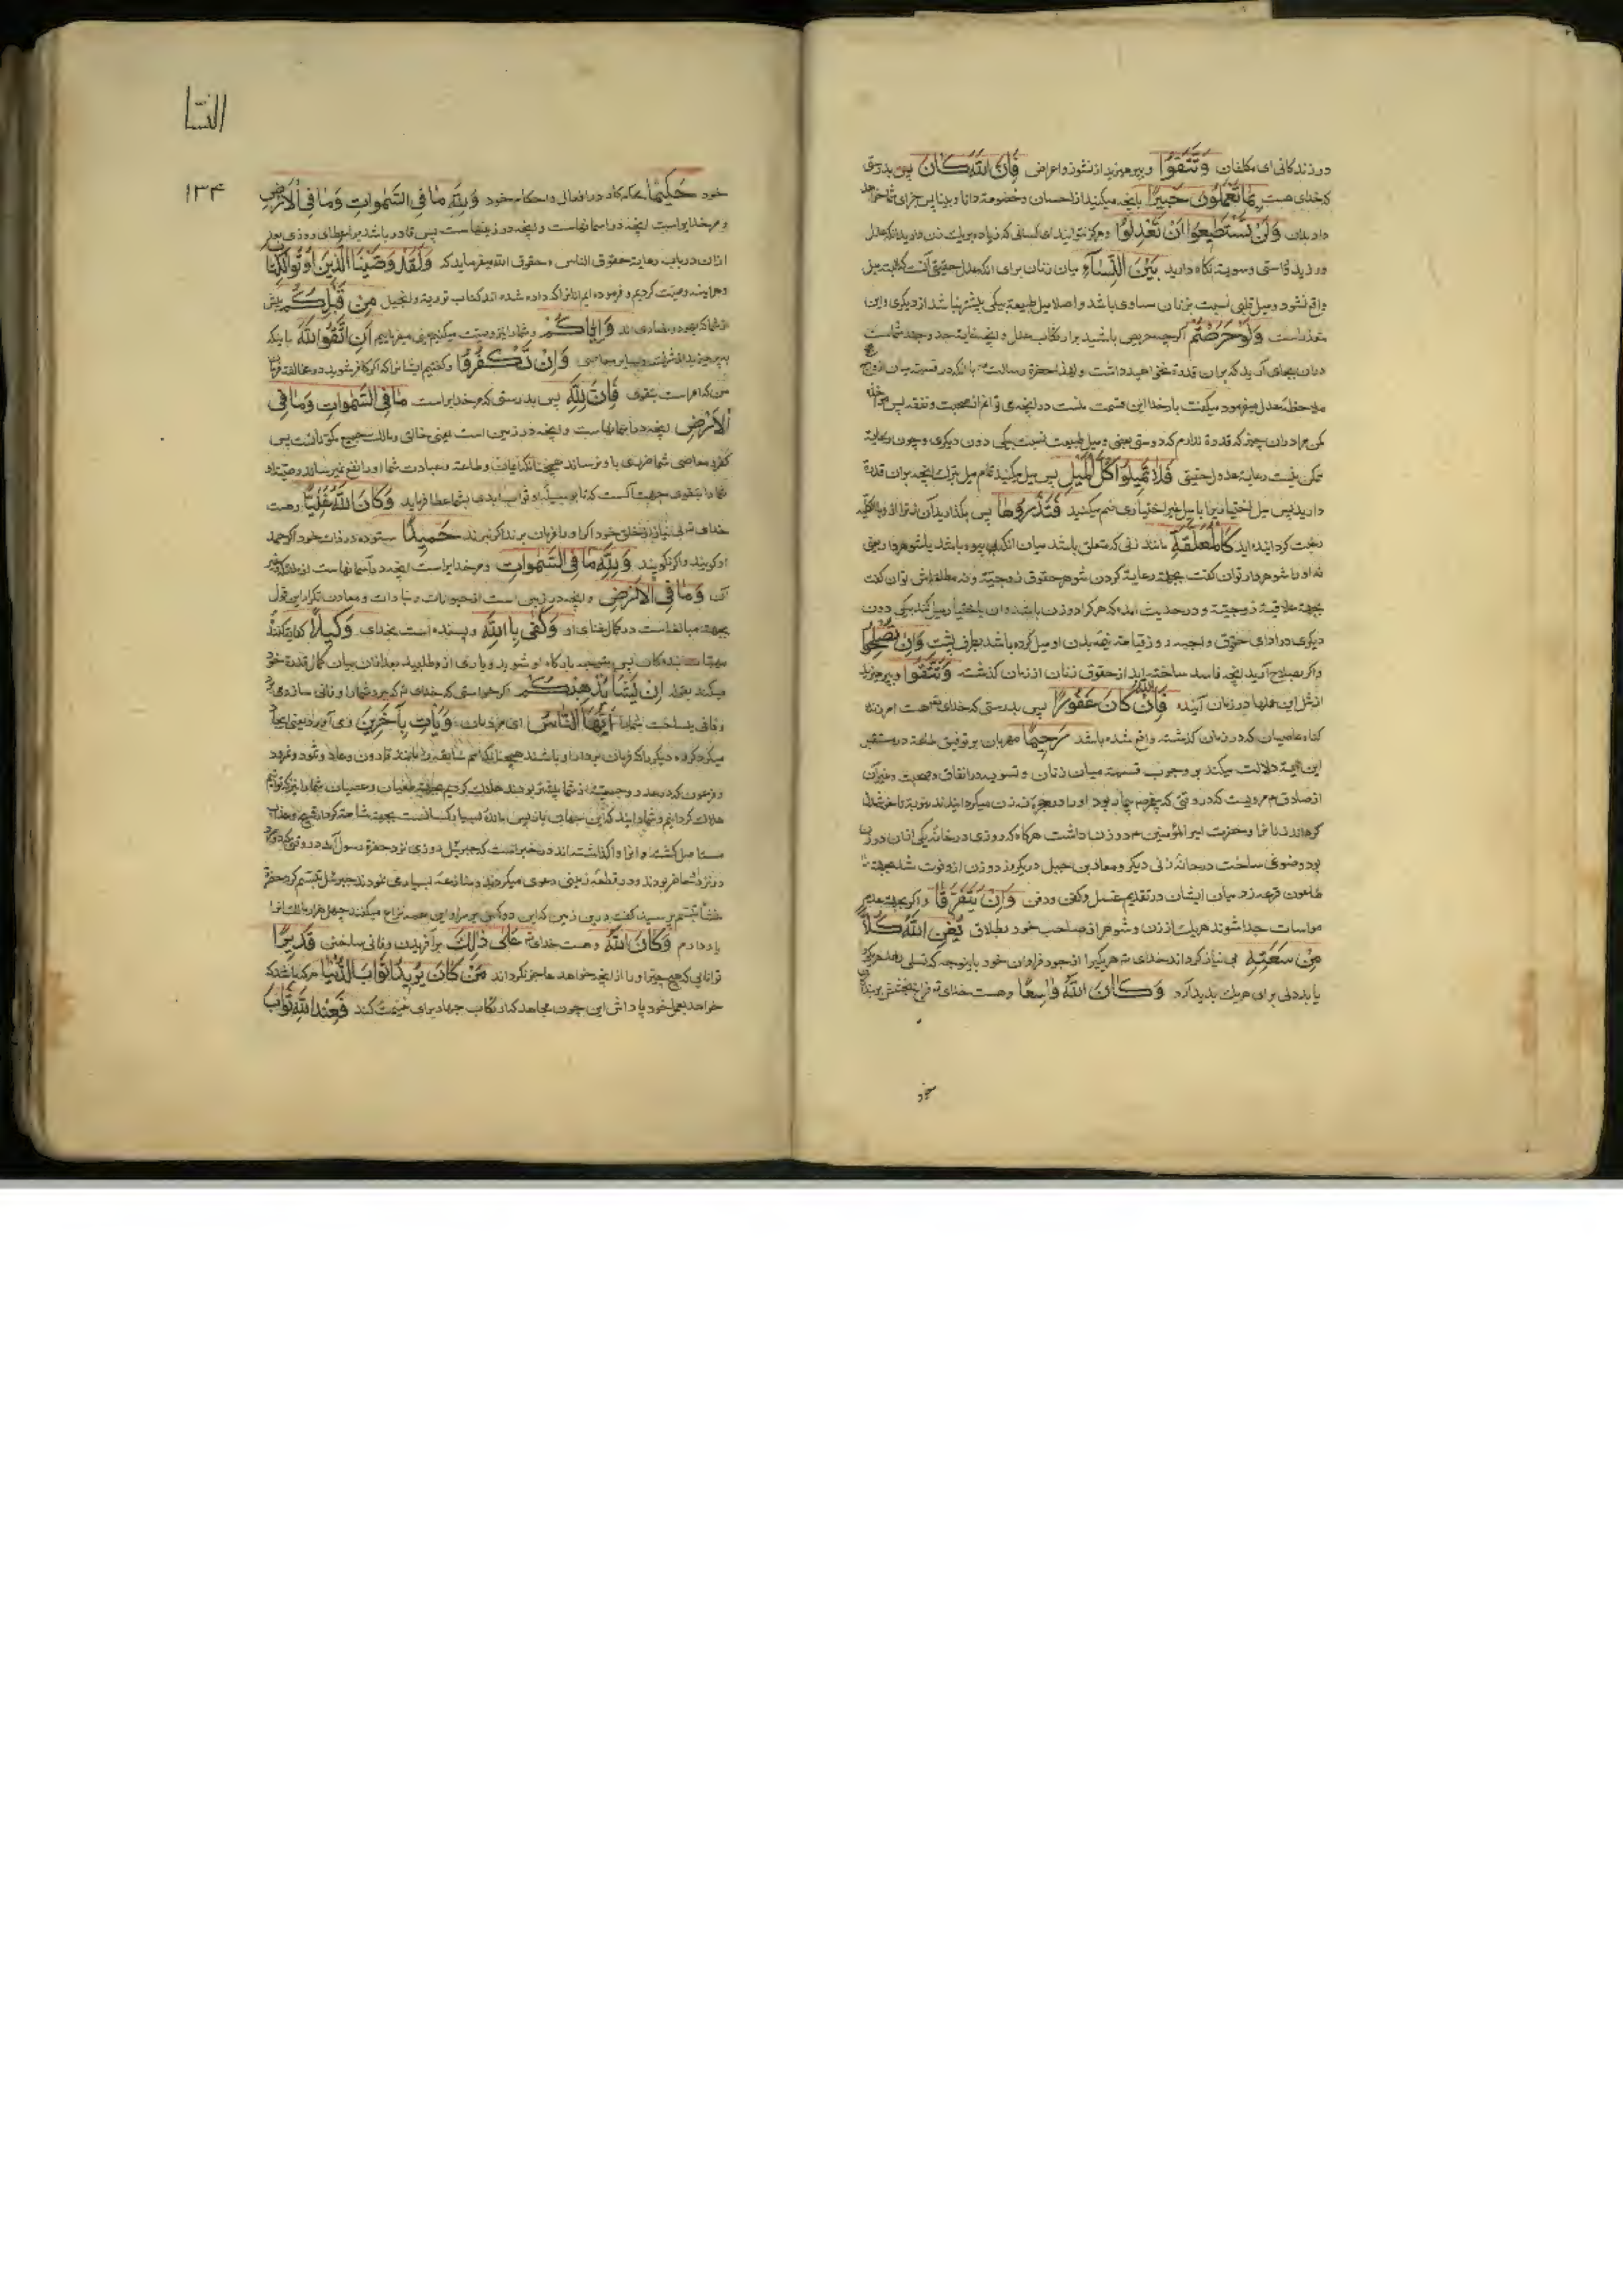 در زندکانی ای مکلفان وَتَتَّقُوا وبپرهیزید از نشوز واعراض فَاِنَّ اللّٰهَ كَانَ پس بدرستی
که خدای هست بِمَا تَعْمَلُونَ خَبِيرًا بانچه میکنید از احسان وخصومة دانا وبینا پس جزای شما خواهد
داد بدان وَلَنْ تَسْتَطِيعُوا اَنْ تَعْدِلُوا وهرکز نتوانید ای کسانی که زیاده بریك زن دارید انکه عدل
ورزید وسویة نکاه دارید بَيْنَ النِّسَآءِ میان زنان برای انکه عدل حقیقی آنست که
واقع نشود ومیل قلبی نسبت بزنان مساوی باشد واصلا میل طبیعة بیکی بیشتر نباشد از دیکری واین
متعذر است وَلَوْ حَرَصْتُمْ اکرچه حریص باشید بر ارتکاب عدل وانچه غایة جد وجهد شماست
دران بجای آرید که بران قدرة نخواهید داشت ولهذا حضرة رسالت با انکه در قسمة میان ازواج
ملاحظه عدل میفرمود میکفت بار خدایا این قسمت منست در انچه می توانم از صحبت ونفقه پس مواخذه
مکن مرا دران چیز که قدرة ندارم که دوستی یعنی ومیل طبیعت نسبت بیکی دون دیکری وچون رعایة
ممکن نیست رعایة عدل حقیقی فَلَا تَمِيلُوا كُلَّ الْمَيْلِ پس میل مکنید تمام میل بترك انچه بران قدرة
دارید پس میل اختیاری را با میل غیر اختیاری ضم میکنید فَتَذَرُوهَا پس بکذارید آن زنرا که
رغبت کردانیده اید كَالْمُعَلَّقَةِ مانند زنی که متعلق باشد میان انکه بیوه باشد یا شوهردار یعنی
نه او را شوهردار توان کفت بجهة رعایة کردن شوهر حقوق زوجیة ونه مطلقه اش توان کفت
بجهة علاقة زوجیة ودر حدیث امده که هر کرا دو زن باشد وان باختیار میل کند بیکی دون
دیکری در ادای حقوق واجبه روز قیامة نیمه بدن او میل کرده باشد بطرف پشت وَاِنْ تُصْلِحُوا
واکر بصلاح آرید انچه فاسد ساخته اید از حقوق زنان از زمان کذشته وَتَتَّقُوا وبپرهیزید
از مثل این عملها در زمان آینده فَاِنَّ اللّٰهَ كَانَ غَفُورًا پس بدرستی که خدای هست امرزنده
کناه عاصیان که در زمان کذشته واقع شده باشد رَحِيمًا مهربان بر توفیق طاعة در مستقبل
این آیة دلالت میکند بر وجوب قسمة میان زنان وتسویه در انفاق وصحبت وغیر آن
از صادق م مرویست که در وقتی که پیغمبر بیمار بود او را در حجره زن میکردانیدند
وحضرت امیر المؤمنین م دو زن داشت هرکاه که روزی در خانه یکی ازان دو زن
بود وضوی ساخت در خانه زنی دیکر ومعاذ بن جبل در یکروز دو زن ازو فوت شد بجهة
طاعون قرعه زد میان ایشان در تقدیم غسل وکفن ودفن وَاِنْ يَتَفَرَّقَا واکر بجهة عدم
مواسات جدا شوند هریك از زن وشوهر از صاحب خود بطلاق يُغْنِ اللّٰهُ كُلًّا
مِنْ سَعَتِهِ بی نیاز کرداند خدای هریکیرا از جود فراوان خود باینوجه که تسلی دهد
یا بدلی برای هریك بدید آرد وَكَانَ اللّٰهُ وَاسِعًا وهست خدای فراخ بخشش بر بندکان
خود
النسا
١٣٤
خود حَكِيمًا محکم کار در افعال واحکام خود وَلِلّٰهِ مَا فِي السَّمٰوَاتِ وَمَا فِي الْاَرْضِ
ومر خدایراست انچه در اسمانهاست وانچه در زمینهاست پس قادر باشد بر اعطای روزی بعد
ازان درباب رعایة حقوق الناس وحقوق الله میفرماید که وَلَقَدْ وَصَّيْنَا الَّذِينَ اُوتُوا الْكِتَابَ
وهراینه وصیّت کردیم وفرموده ایم انانرا که داده شده اند کتاب توریة وانجیل مِنْ قَبْلِكُمْ پیش
از شما که یهود ونصاری اند وَاِيَّاكُمْ وشما را نیز وصیت میکنیم یعنی میفرماییم اَنِ اتَّقُوا اللّٰهَ بانکه
بپرهیزید از شرك وسایر معاصی وَاِنْ تَكْفُرُوا وکفتیم ایشانرا که اکر کافر شوید ومخالفة فرمان
من که امر است بتقوی فَاِنَّ لِلّٰهِ پس بدرستی که مر خدایراست مَا فِي السَّمٰوَاتِ وَمَا فِي
الْاَرْضِ انچه در اسمانهاست وانچه در زمین است یعنی خالق ومالك جمیع مکوناتست پس
کفر ومعاصی شما ضرری باو نرساند همچنانکه ایمان وطاعة وعبادت شما او را نفع نمیرساند ووصیّت او
شما را بتقوی بجهت آنست که تا بوسیلهٔ او ثواب ابدی بشما عطا فرماید وَكَانَ اللّٰهُ غَنِيًّا وهست
خدای بی نیاز از خلق خود اکر او را فرمان برند اکر نبرند حَمِيدًا ستوده در ذات خود اکر حمد
او کویند واکر نکویند وَلِلّٰهِ مَا فِي السَّمٰوَاتِ ومر خدایراست انچه در آسمانهاست از ملائکه وغیر
آن وَمَا فِي الْاَرْضِ وانچه در زمین است از حیوانات ونباتات ومعادن تکرار این قول
بجهت مبالغه است در کمال غنای او وَكَفٰى بِاللّٰهِ وبسنده است بخدای وَكِيلًا کفایت کنندهٔ
مهمّات بنده کان پس متوجه بارکاه او شوید ویاری ازو طلبید بعد ازان بیان کمال قدرة خود
میکند بقوله اِنْ يَشَأْ يُذْهِبْكُمْ اکر خواستی که خدای ببرد شما را وفانی سازدی
وفانی بساخت شما را اَيُّهَا النَّاسُ ای مردمان وَيَأْتِ بِاٰخَرِينَ ومی آورد یعنی ایجاد
میکرد کروه دیکر را که فرمان بردار او باشند همچنانکه امم سابقه را مانند قارون وعاد وثمود ونمرود
وفرعون که در عدد وجمعیّت از شما بیشتر بودند هلاك کردیم بجهة طغیان وعصیان شما را نیز توانیم
هلاك کردانیم
یاد دارم وَكَانَ اللّٰهُ وهست خدای عَلٰى ذٰلِكَ بر آفریدن وفانی ساختن قَدِيرًا
توانا یی که هیچ چیز او را از انچه خواهد عاجز نکرداند مَنْ كَانَ يُرِيدُ ثَوَابَ الدُّنْيَا هرکه باشد که
خواهد بعمل خود پاداش این چون مجاهد که ارتکاب جهاد برای غنیمت کند فَعِنْدَ اللّٰهِ ثَوَابُ